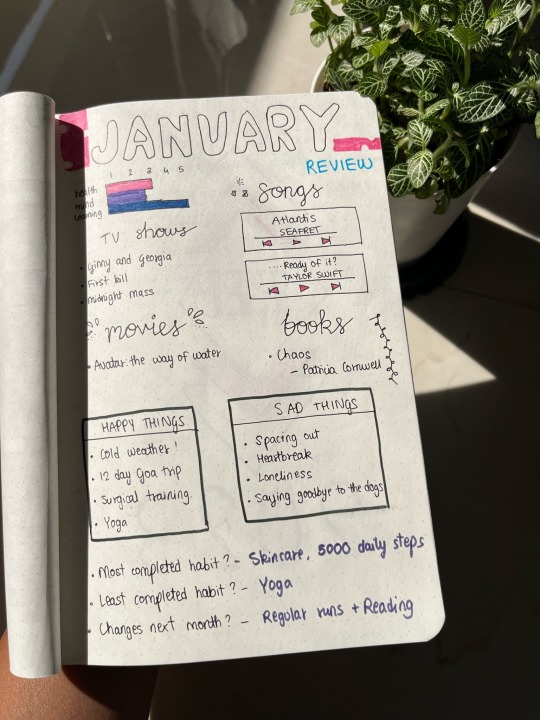 JANUARY
REVIEW
1 2 3 4 5
health
mind
Learning
Songs
Atlantis
SEAFRET
....Ready of it?
TAYLOR SWIFT
TV shows
• Ginny and Georgia
• First kill
• midnight mass
movies
• Avatar: the way of water
books
• Chaos
– Patricia Cornwell
HAPPY THINGS
• Cold weather!
• 12 day Goa trip
• Surgical training
• Yoga
SAD THINGS
• Spacing out
• Heartbreak
• Loneliness
• Saying goodbye to the dogs
• Most completed habit? – Skincare, 5000 daily steps
• Least completed habit? – Yoga
• Changes next month? – Regular runs + Reading